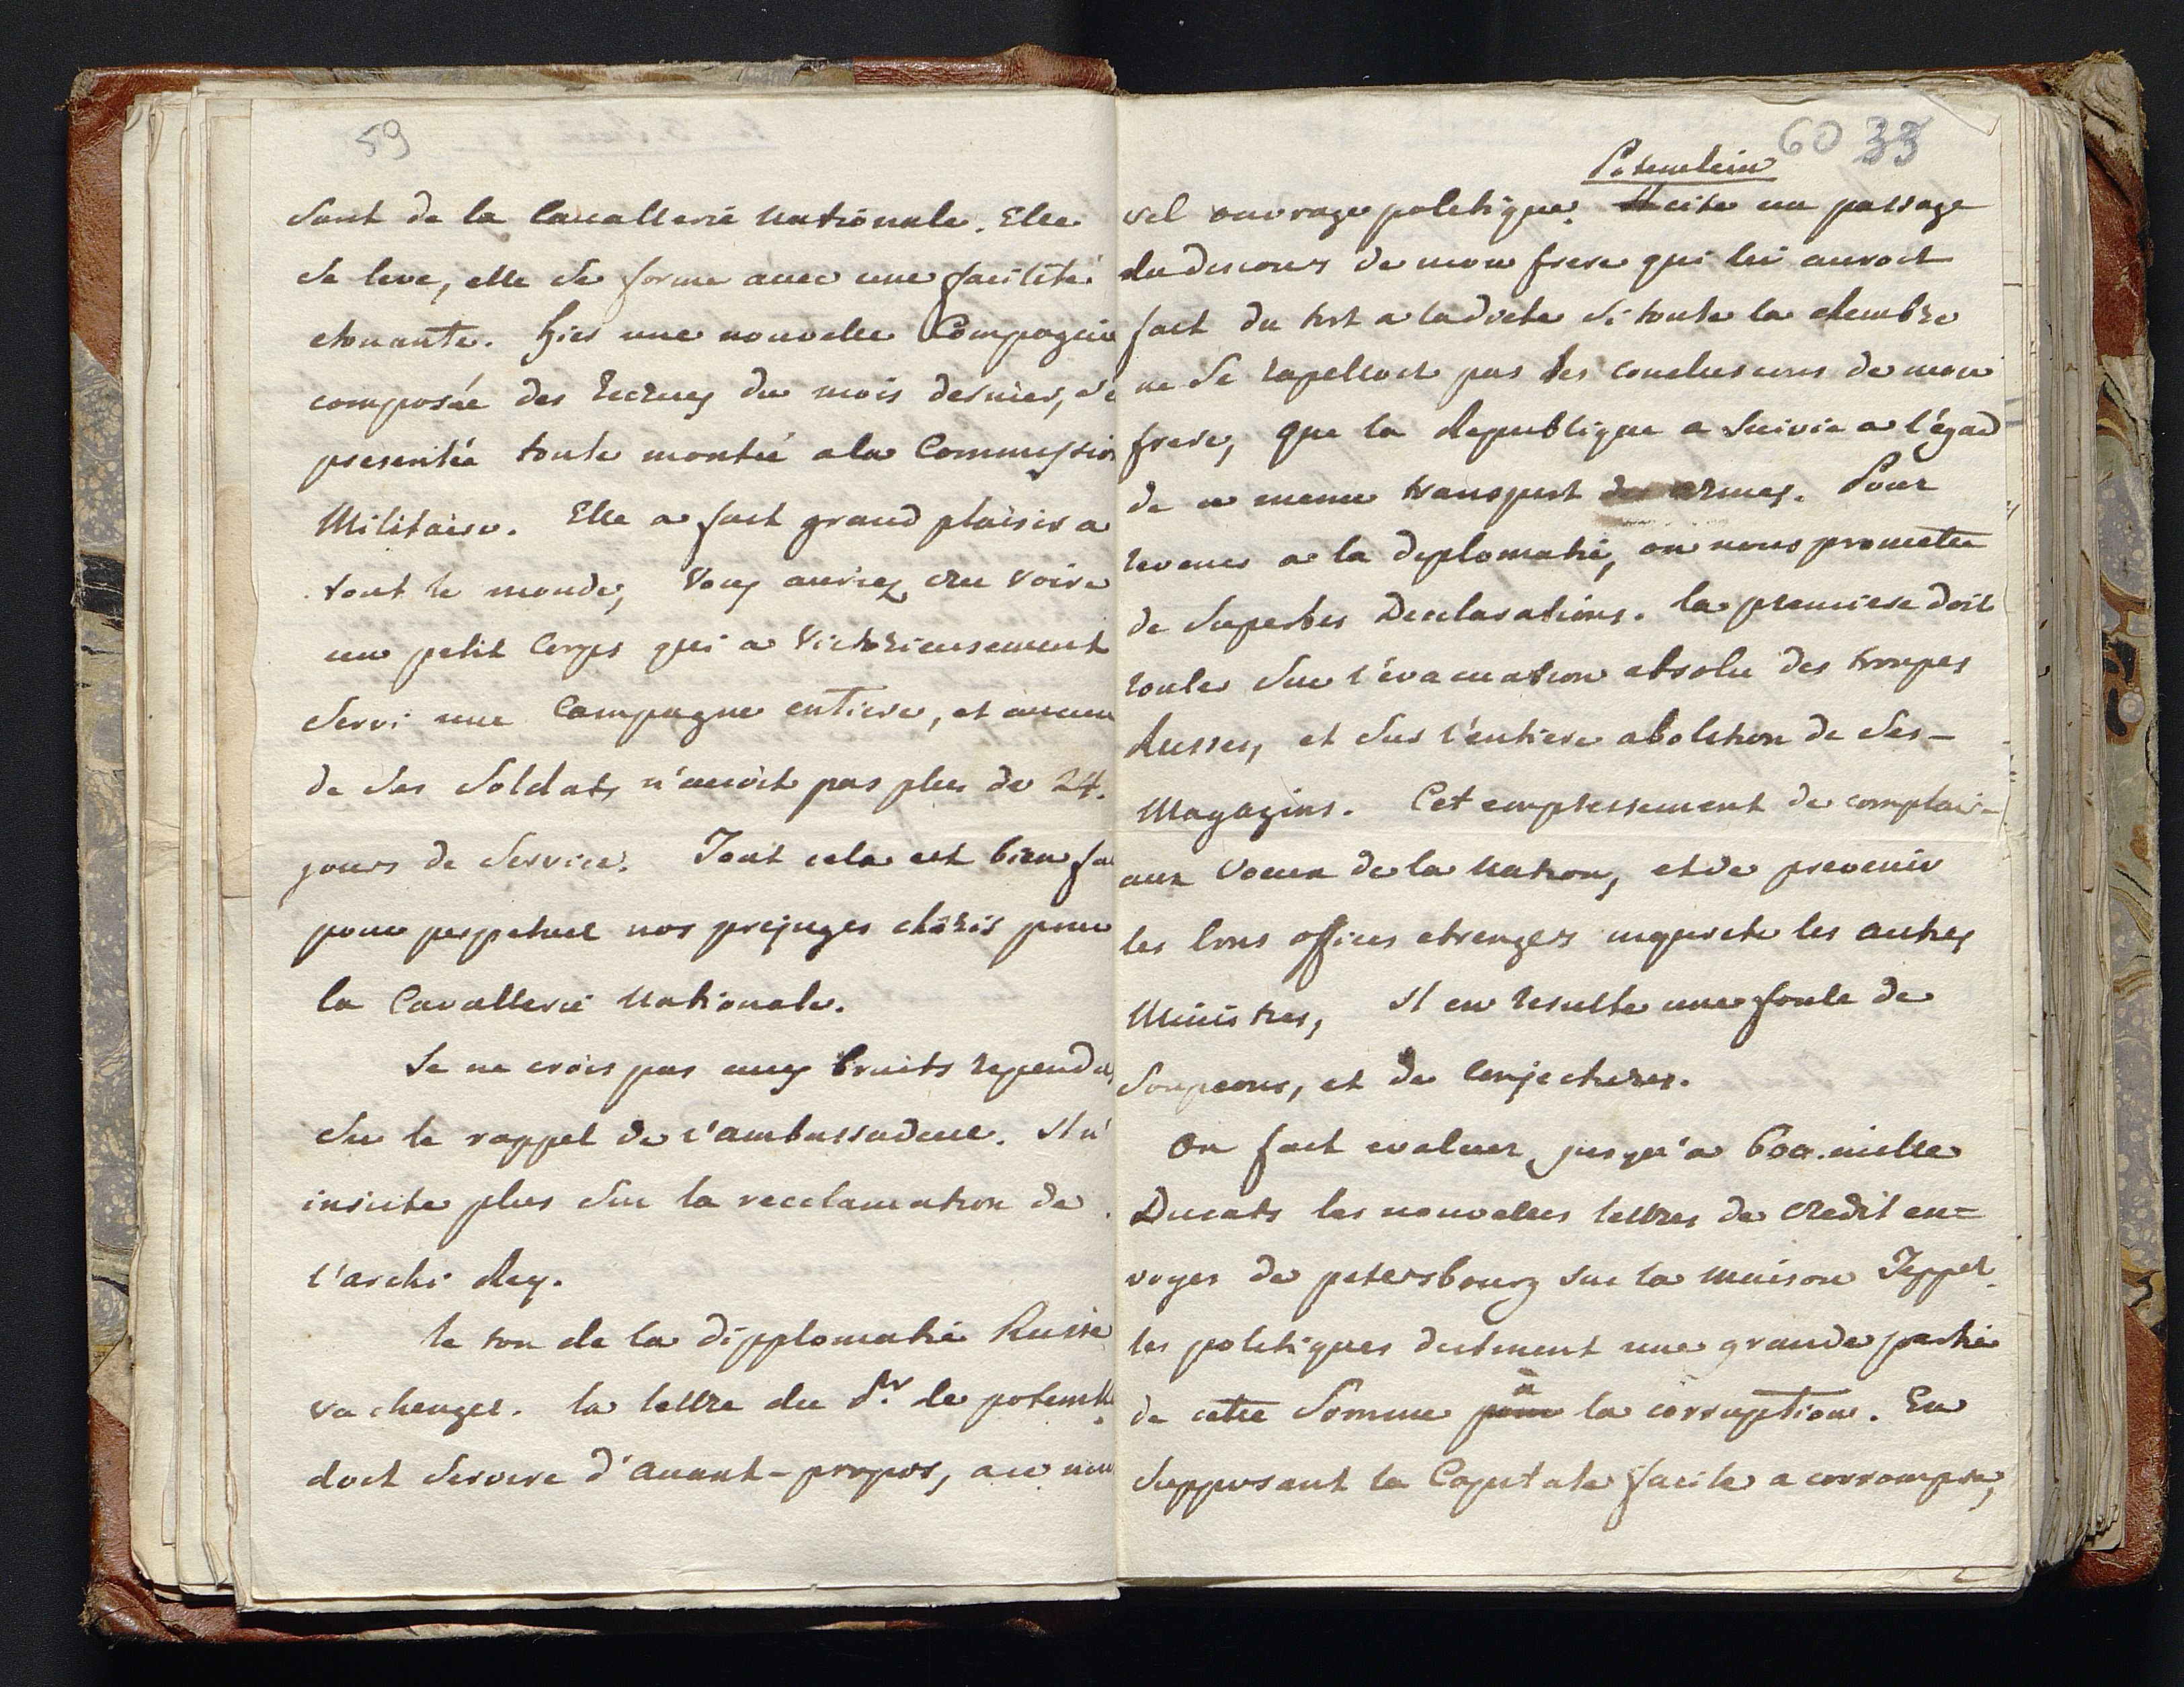 59
sant de la Cavallerie Nationale. Elle
se leve, elle se forme avec une facilité
etonante. hier une nouvelle Compagnie
composée des recrues du mois dernier, s'e
presentée toute montée a la Commission
Militaire. Elle a fait grand plaisir a
tout le monde, Vous auriez cru voire
un petit Corps qui a victorieusement
servi une Campagne entiere, et aucun
de ses Soldats n'avoit pas plus de 24.
jours de Service. Tout cela est bien fa
pour perpetuer nos prejuges cheris pour
la Cavallerie Nationale.
Je ne crois pas aux bruits repandus
sur le rappel de l'ambassadeur. Il n'
insiste plus sur la reclamation de
l'archi Reg.
le ton de la dipplomatie Russe
va changer. la lettre du Pr. de potemk
doit servire d'avant-propos, au nou
60 33
Potemkin
vel ouvrage politique. Il cite un passage
du discours de mon frere qui lui auroit
fait du tort a la diete si toute la chembre
ne se rapelloit pas les conclusions de mon
frere, que la Republique a suivie a l'égard
de ce meme transport des armes. Pour
revenir a la diplomatie, on nous promette
de superbes Declarations. la premiere doit
rouler sur l'évacuation absolu des troupes
Russes, et sur l'entiere abolition de ses-
Magazins. Cet empressement de complair-
aux voeux de la Nation, et de prevenir
les bons offices etrangers inquiete les autres
Ministres, Il en resulte une foule de
soupcons, et de Conjectures.
On fait evaluer jusqu'a 600. mille
Ducats les nouvelles lettres de credit en=
voyes de petersbourg sur la maison Teppel
les politiques destinent une grande partie
de cette somme pour à la corruption. En
supposant la Capitale facile a corrompre,